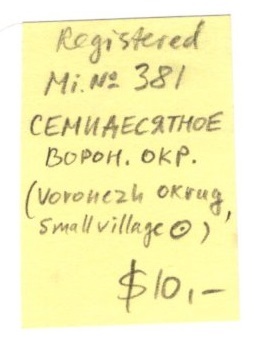 Registered
Mi.№ 381
СЕМИДЕСЯТНОЕ
ВОРОН. ОКР.
(Voronezh okrug,
small village ⊙)
$10,-